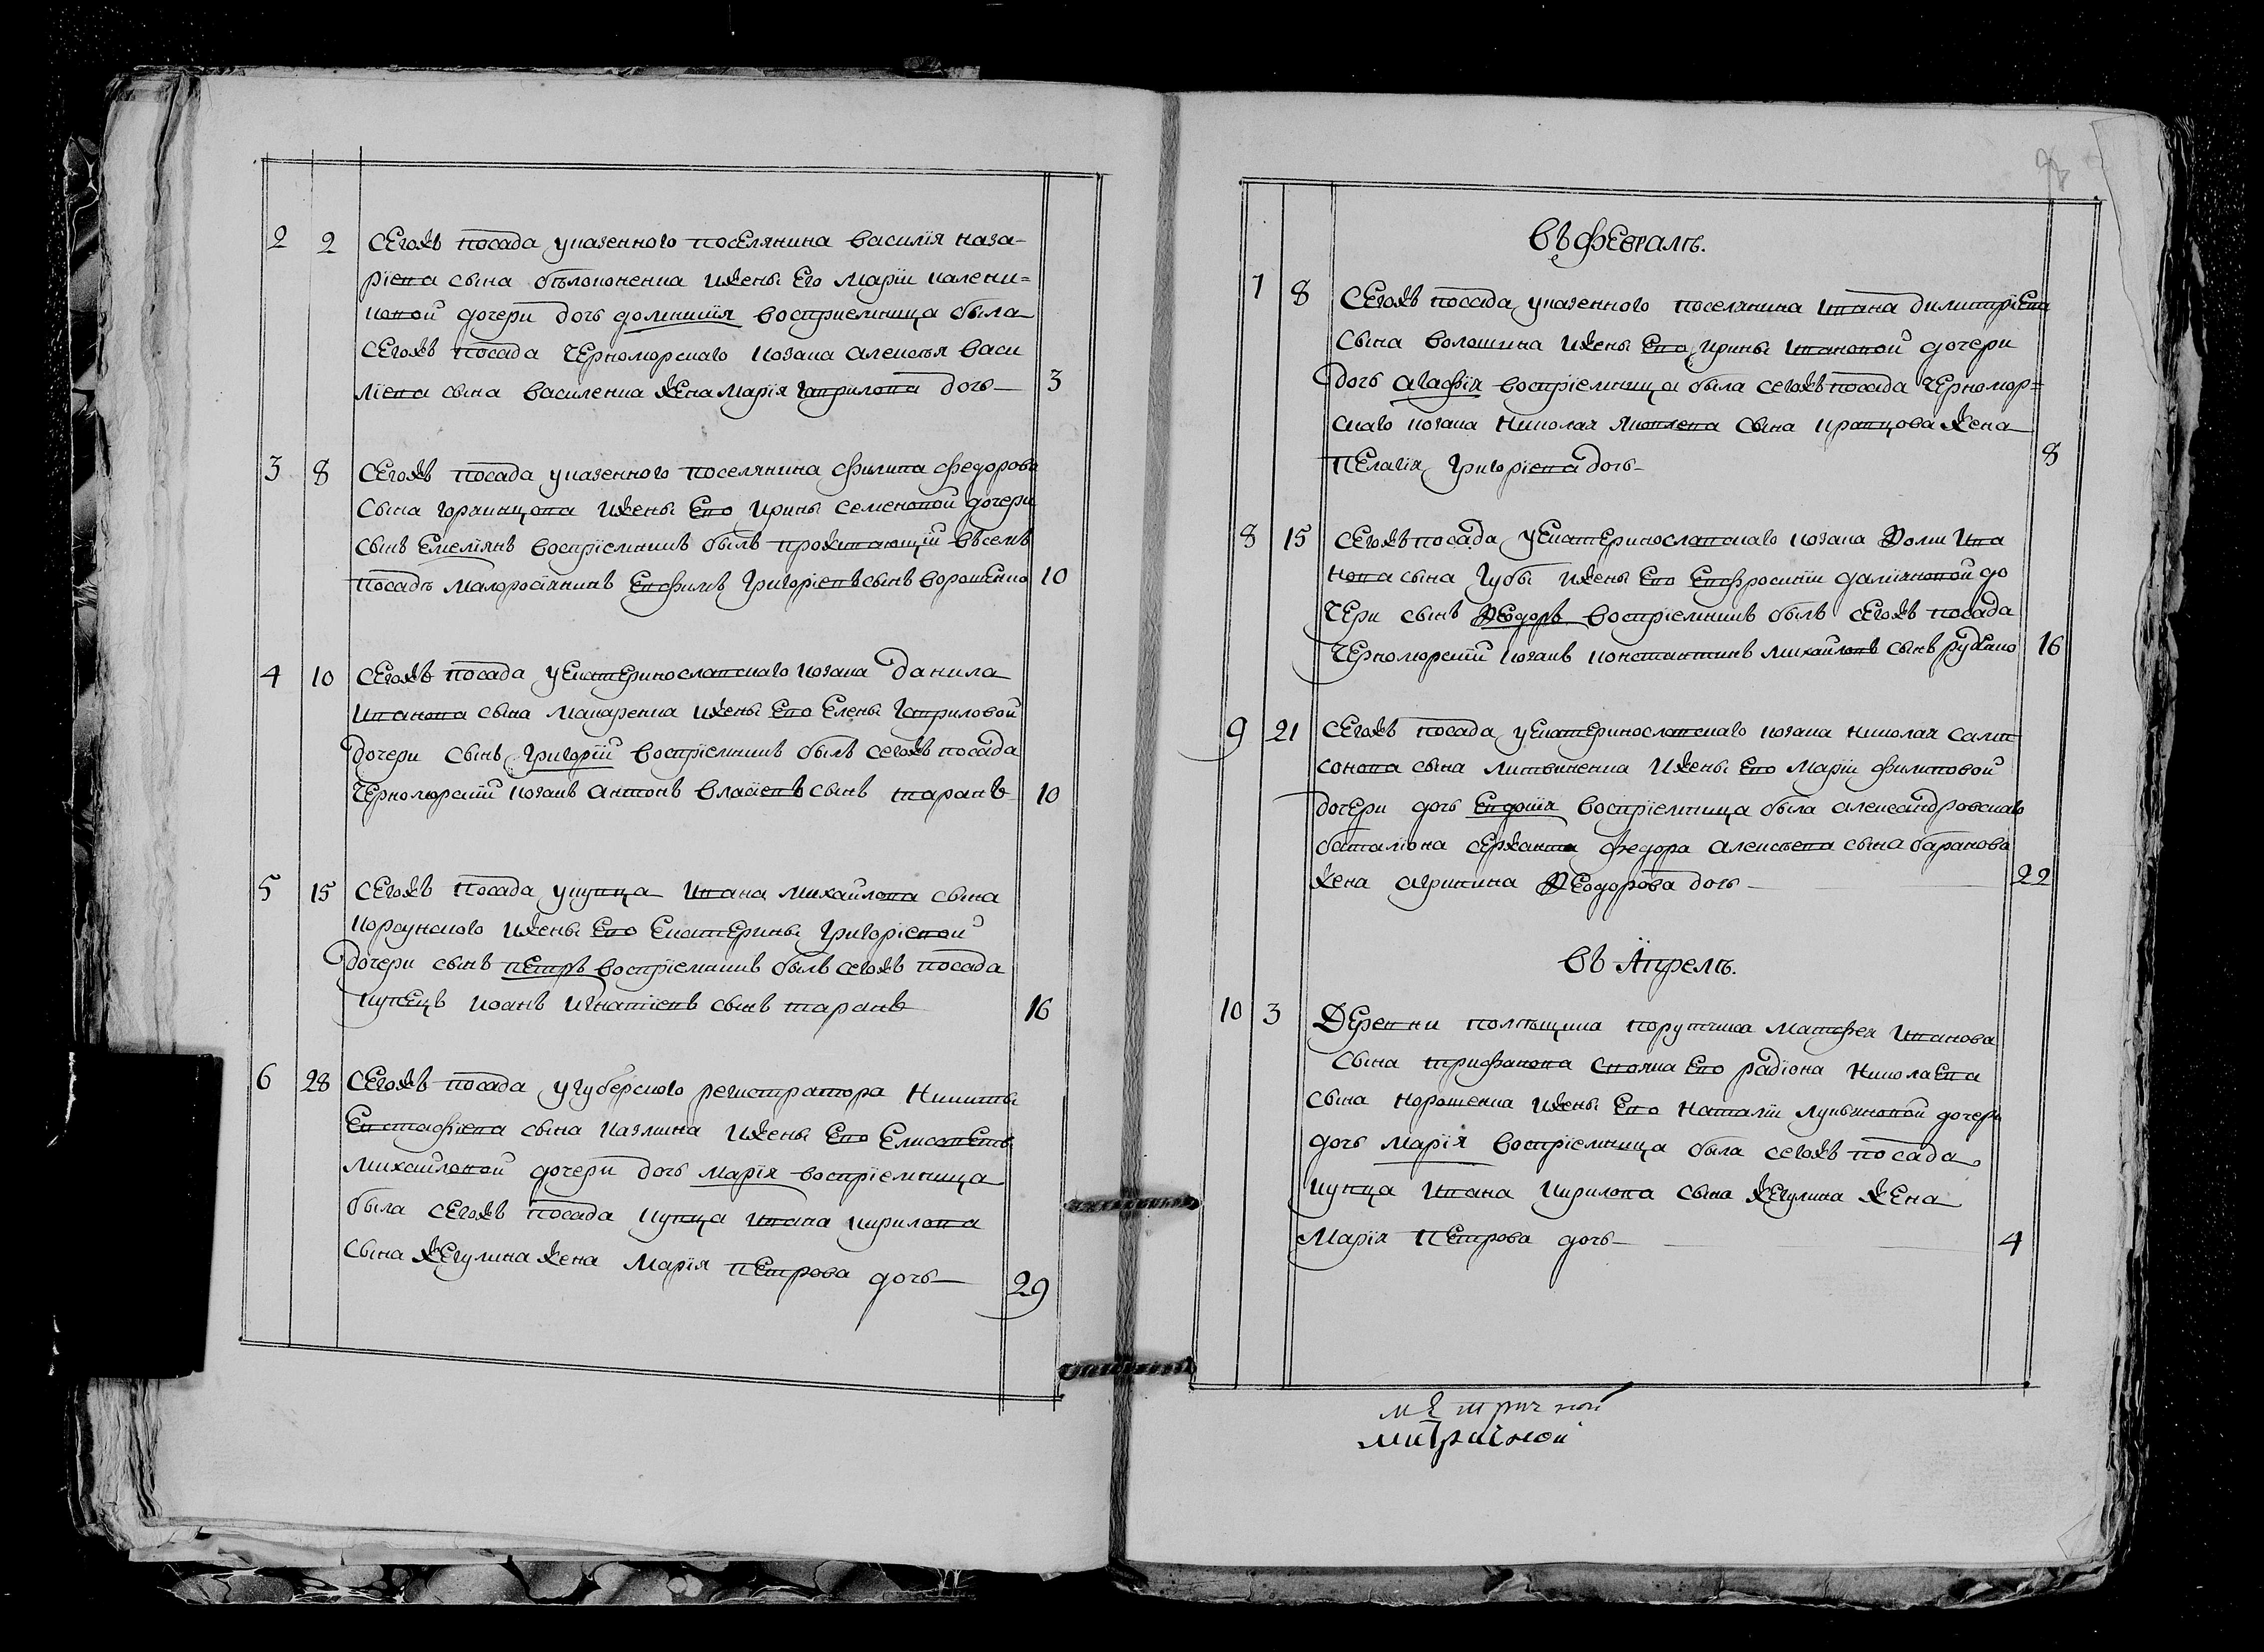 2 2 Сегожъ посада указенного поселянина василїя наза-
рїева сына бѣлоконенка ижены Его Марїи калени-
ковой дочери дочь домникїя восприемница была
Сегожъ посада Черноморскаго козака алексѣя васи
лїева сына василенка жена Марїя гаврилова дочь 3
3 8 Сегожъ посада указенного поселянина филипа федорова
Сына горкавцова ижены Ево Ирины семеновой дочери
сынъ Емелїянъ воспрїемникъ былъ проживающїй въсемъ
посадѣ малоросїянинъ Евфимъ Григорїевъ сынъ ворошенко 10
4 10 Сегожъ посада уЕкатеринославскаго козака Данила
Иванова сына макаренка ижены Ево Елены Гавриловой
дочери сынъ Григорїй воспрїемникъ былъ сегожъ посада
Черноморскїй козакъ антонъ власїевъ сынъ таранъ 10
5 15 Сегожъ посада укупца Ивана михайлова сына
корсунского ижены Ево Екатерины Григорїевой
дочери сынъ петръ воспрїемникъ былъ сегожъ посада
купецъ иоанъ игнатїевъ сынъ таранъ 16
6 28 Сегожъ посада угуберского регистратора Никиты
Евстафїева сына казмина ижены Ево Елисаветы
михайловой дочери дочь марїя воспрїемница
была сегожъ посада купца ивана кирилова
сына жегулина жена Марїя петрова дочь 29
въ февралѣ.
7 8 Сегожъ посада указенного поселянина ивана димитрїева
Сына волошина ижены Ево ирины ивановой дочери
дочь агафїя воспрїемница была сегожъ посада черномор=
скаго козака николая яковлева сына кравцова жена
пелагїя григорїева дочь 8
8 15 Сегожъ посада уЕкатеринославскаго козака Ѳоми Ива
нова сына Губы ижены Ево Евфросинїи далїяновой до
чери сынъ Ѳеодоръ воспрїемникъ былъ сегожъ посада
Черноморскїй козакъ константинъ михайловъ сынъ рудЕнко 16
9 21 Сегожъ посада уЕкатеринославскаго козака николая самп
сонова сына литвиненка ижены Ево Марїи филиповой
дочери дочь Евдокїя воспрїемница была александровскаго
баталїона сержанта федора алексѣева сына баранова
жена агрипина Ѳеодорова дочь 22
въ Апрелѣ.
10 3 Деревни полѣщина порутчика Матфея Иванова
сына трифанова снояка Ево радїона Николаева
сына норошенка ижены Ево наталїи лукьиновой дочери
дочь марїя воспрїемница была сегожъ посада
купца ивана кирилова сына жегулина жена
Марїя петрова дочь 4
метричной
митричной